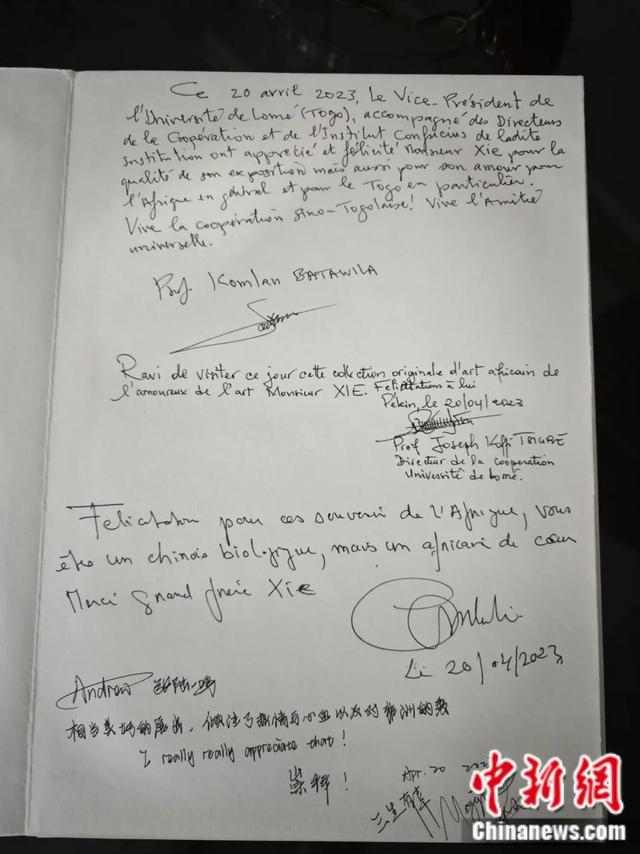 Ce 20 avril 2023, Le Vice-Président de
l'Université de Lomé (Togo), accompagné des Directeurs
de la Coopération et de l'Institut Confucius de ladite
Institution ont apprécié et félicité Monsieur Xie pour la
qualité de son exposition mais aussi pour son amour pour
l'Afrique en général et pour le Togo en particulier.
Vive la coopération Sino-Togolaise! Vive l'Amitié
universelle.
Prof. Komlan BATAWILA
Ravi de visiter ce jour cette collection originale d'art africain de
l'amoureux de l'art Monsieur XIE. Félicitations à lui
Pékin, le 20/04/2023
Prof Joseph Koffi
Directeur de la coopération
Université de Lomé.
Félicitation pour ces souvenir de l'Afrique, vous
êtes un chinois biologique, mais un africain de cœur
Merci grand frère Xie
Li 20/04/2023
Andrew
相当美好的展出，倾注了热情与心血以及对非洲的爱
I really really appreciate that!
崇拜！
Apr. 20
三生有幸
中新网
Chinanews.com